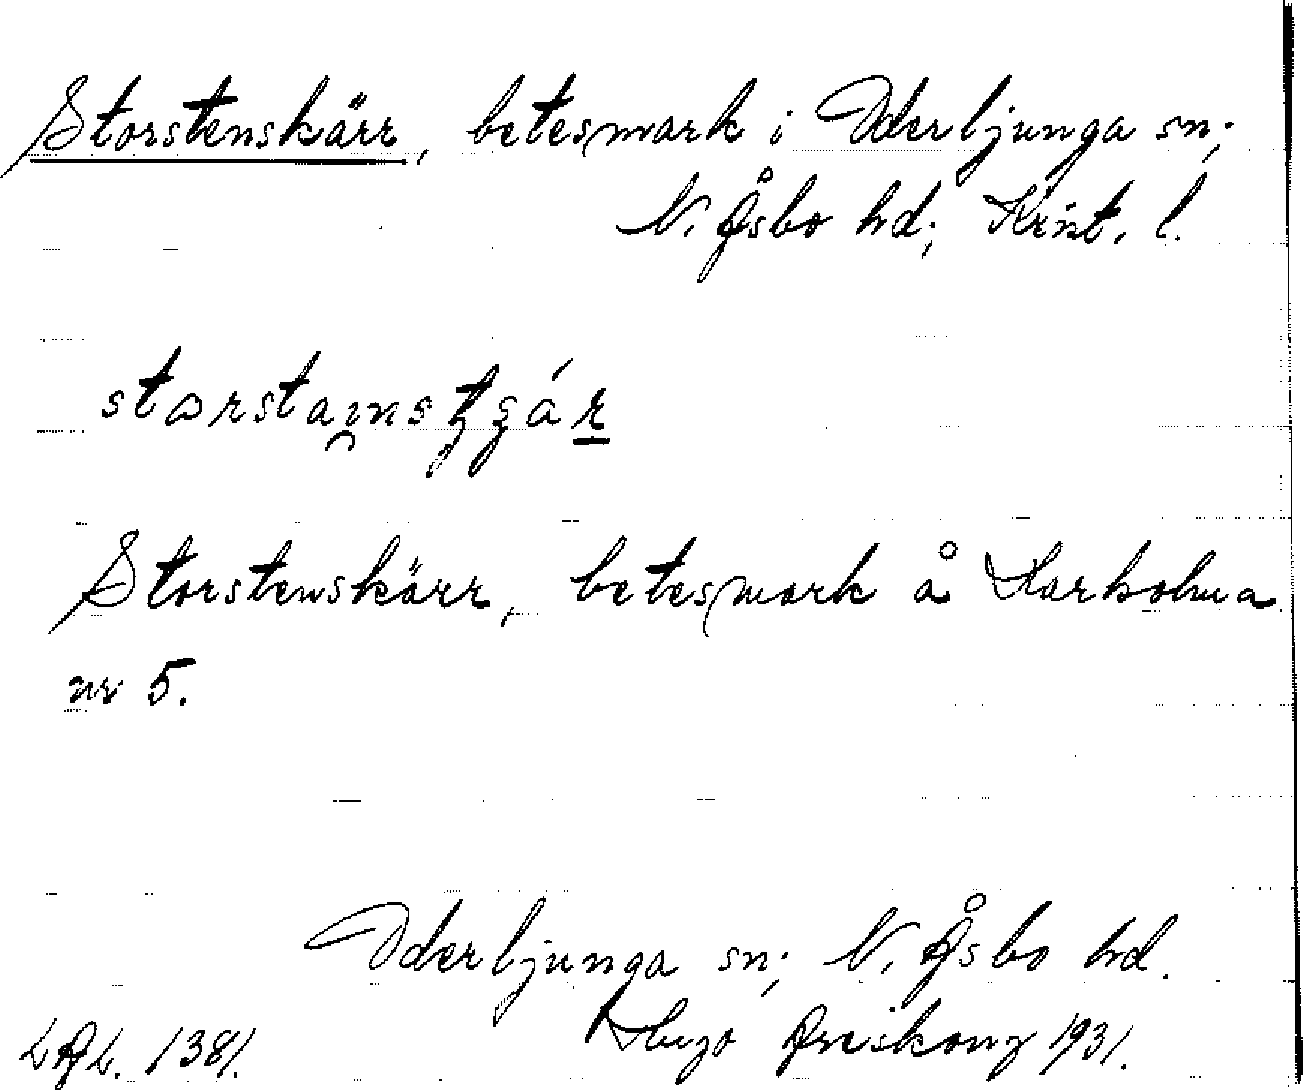 Storstenskärr, betesmark i Oderljunga sn;
N. Åsbo hd; Krist. l.
Storstenskärr, betesmark å Karholma
nr 5.
Oderljunga sn; N. Åsbo hd.
LAL. 1381. Hugo Areskoug 1931.